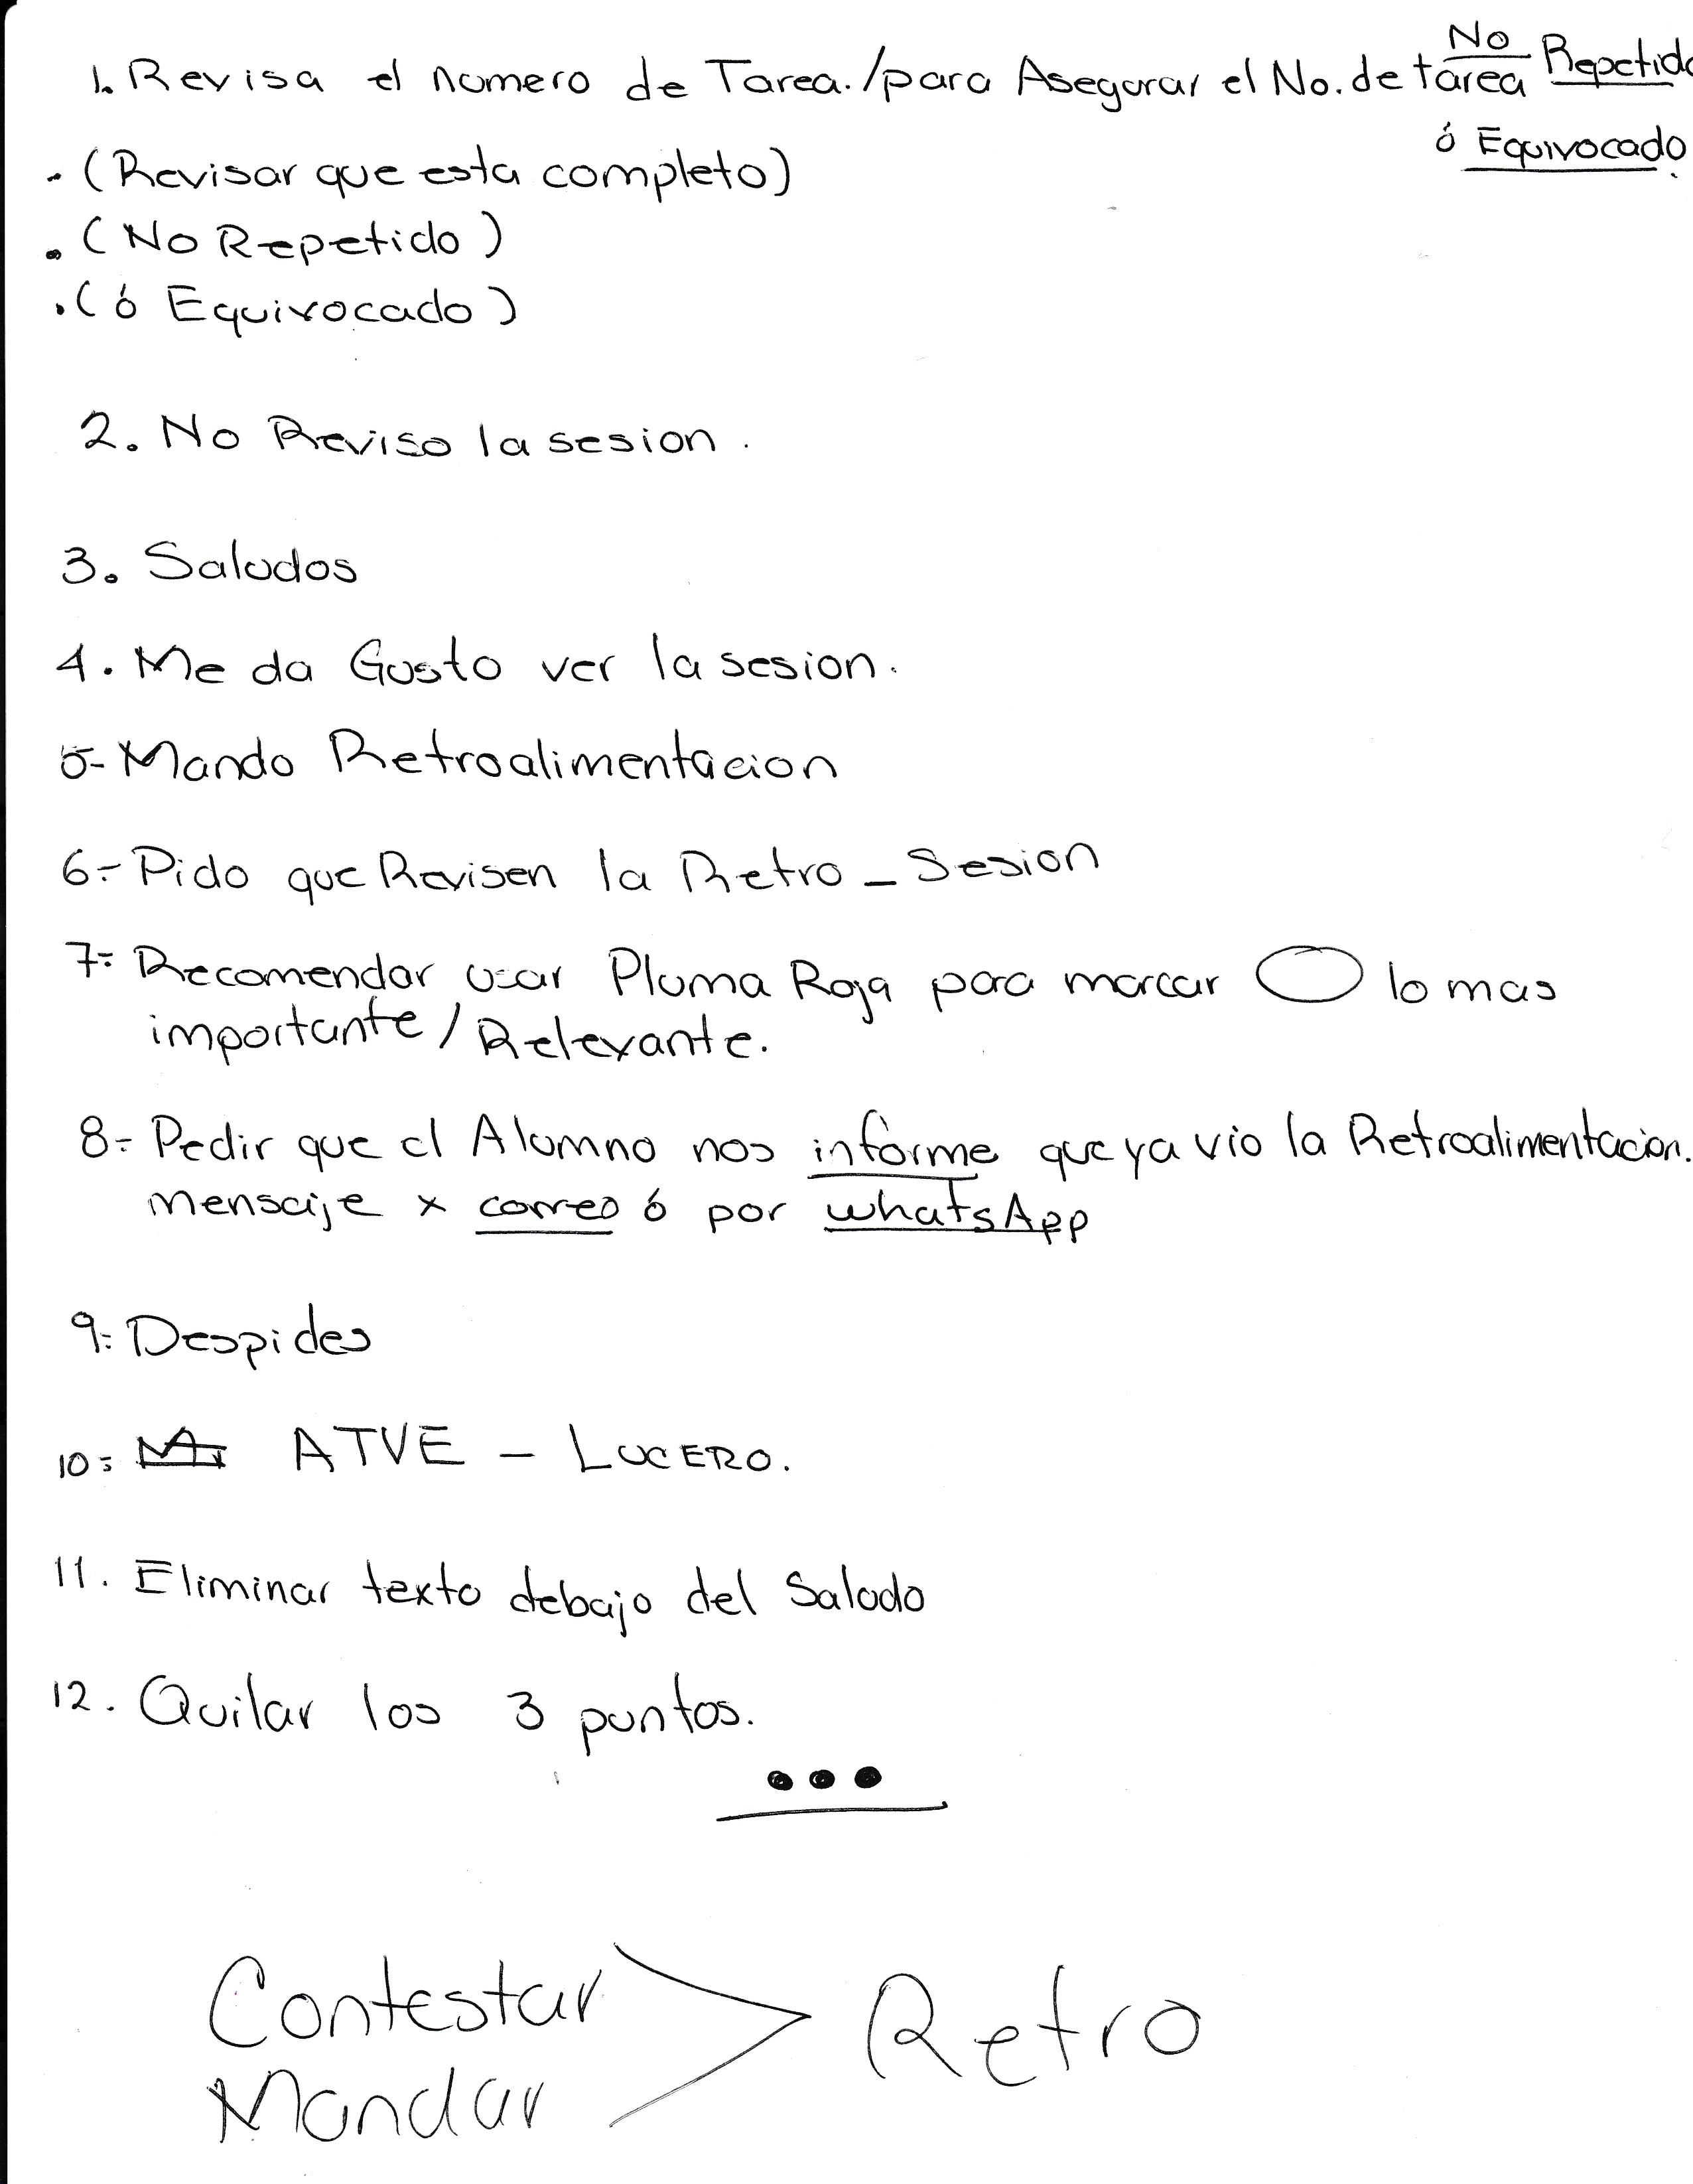 1. Revisa el numero de Tarea./para Asegurar el No. de tarea No Repetido
ó Equivocado.
- (Revisar que esta completo)
. (No Repetido)
. (ó Equivocado)
2. No Reviso la sesion.
3. Saludos
4. Me da Gusto ver la sesion.
5- Mando Retroalimentacion
6- Pido que Revisen la Retro - Sesion
7- Recomendar usar Pluma Roja para marcar lo mas
importante/Relevante.
8- Pedir que el Alumno nos informe que ya vio la Retroalimentación.
mensaje x correo ó por whatsApp
9- Despides
10- ATVE - LUCERO.
11. Eliminar texto debajo del Saludo
12. Quitar los 3 puntos.
...
Contestar
Mandar
Retro